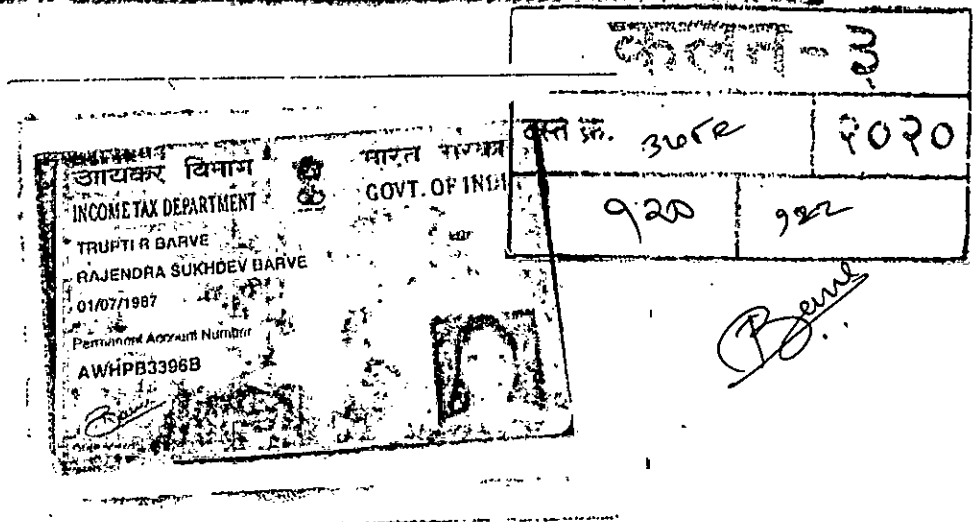 कलम - २
दस्त क्र. ३७९८ २०२०
१२० १२२
आयकर विभाग
भारत सरकार
INCOME TAX DEPARTMENT
GOVT. OF INDIA
TRUPTI R BARVE
RAJENDRA SUKHDEV BARVE
01/07/1987
Permanent Account Number
AWHPB3396B
Barve
Barve